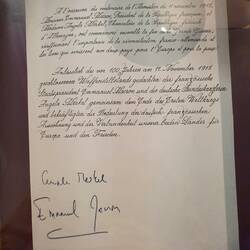 A l'occasion du centenaire de l'Armistice du 11 novembre 1918,
Monsieur Emmanuel Macron, Président de la République française et
Madame Angela Merkel, Chancelière de la République fédérale
d'Allemagne, ont commémoré ensemble la fin de la Grande Guerre
l'importance de la réconciliation franco-allemande
au service de l'Europe et pour la paix.
Anlässlich des vor 100 Jahren am 11. November 1918
geschlossenen Waffenstillstandes gedachten der französische
Staatspräsident Emmanuel Macron und die deutsche Bundeskanzlerin
Angela Merkel gemeinsam dem Ende des Ersten Weltkriegs
und bekräftigten die Bedeutung der deutsch-französischen
Aussöhnung und der Verbundenheit unserer beiden Länder für
Europa und den Frieden.
Angela Merkel
Emmanuel Macron